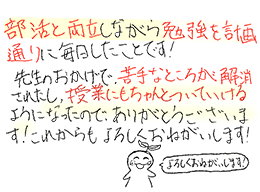 部活と両立しながら勉強を計画
通りに毎日したことです!
先生のおかげで、苦手なところが解消
されたし、授業にもちゃんとついていける
ようになったので、ありがとうございま
す!これからもよろしくおねがいします!
よろしくおねがいします!